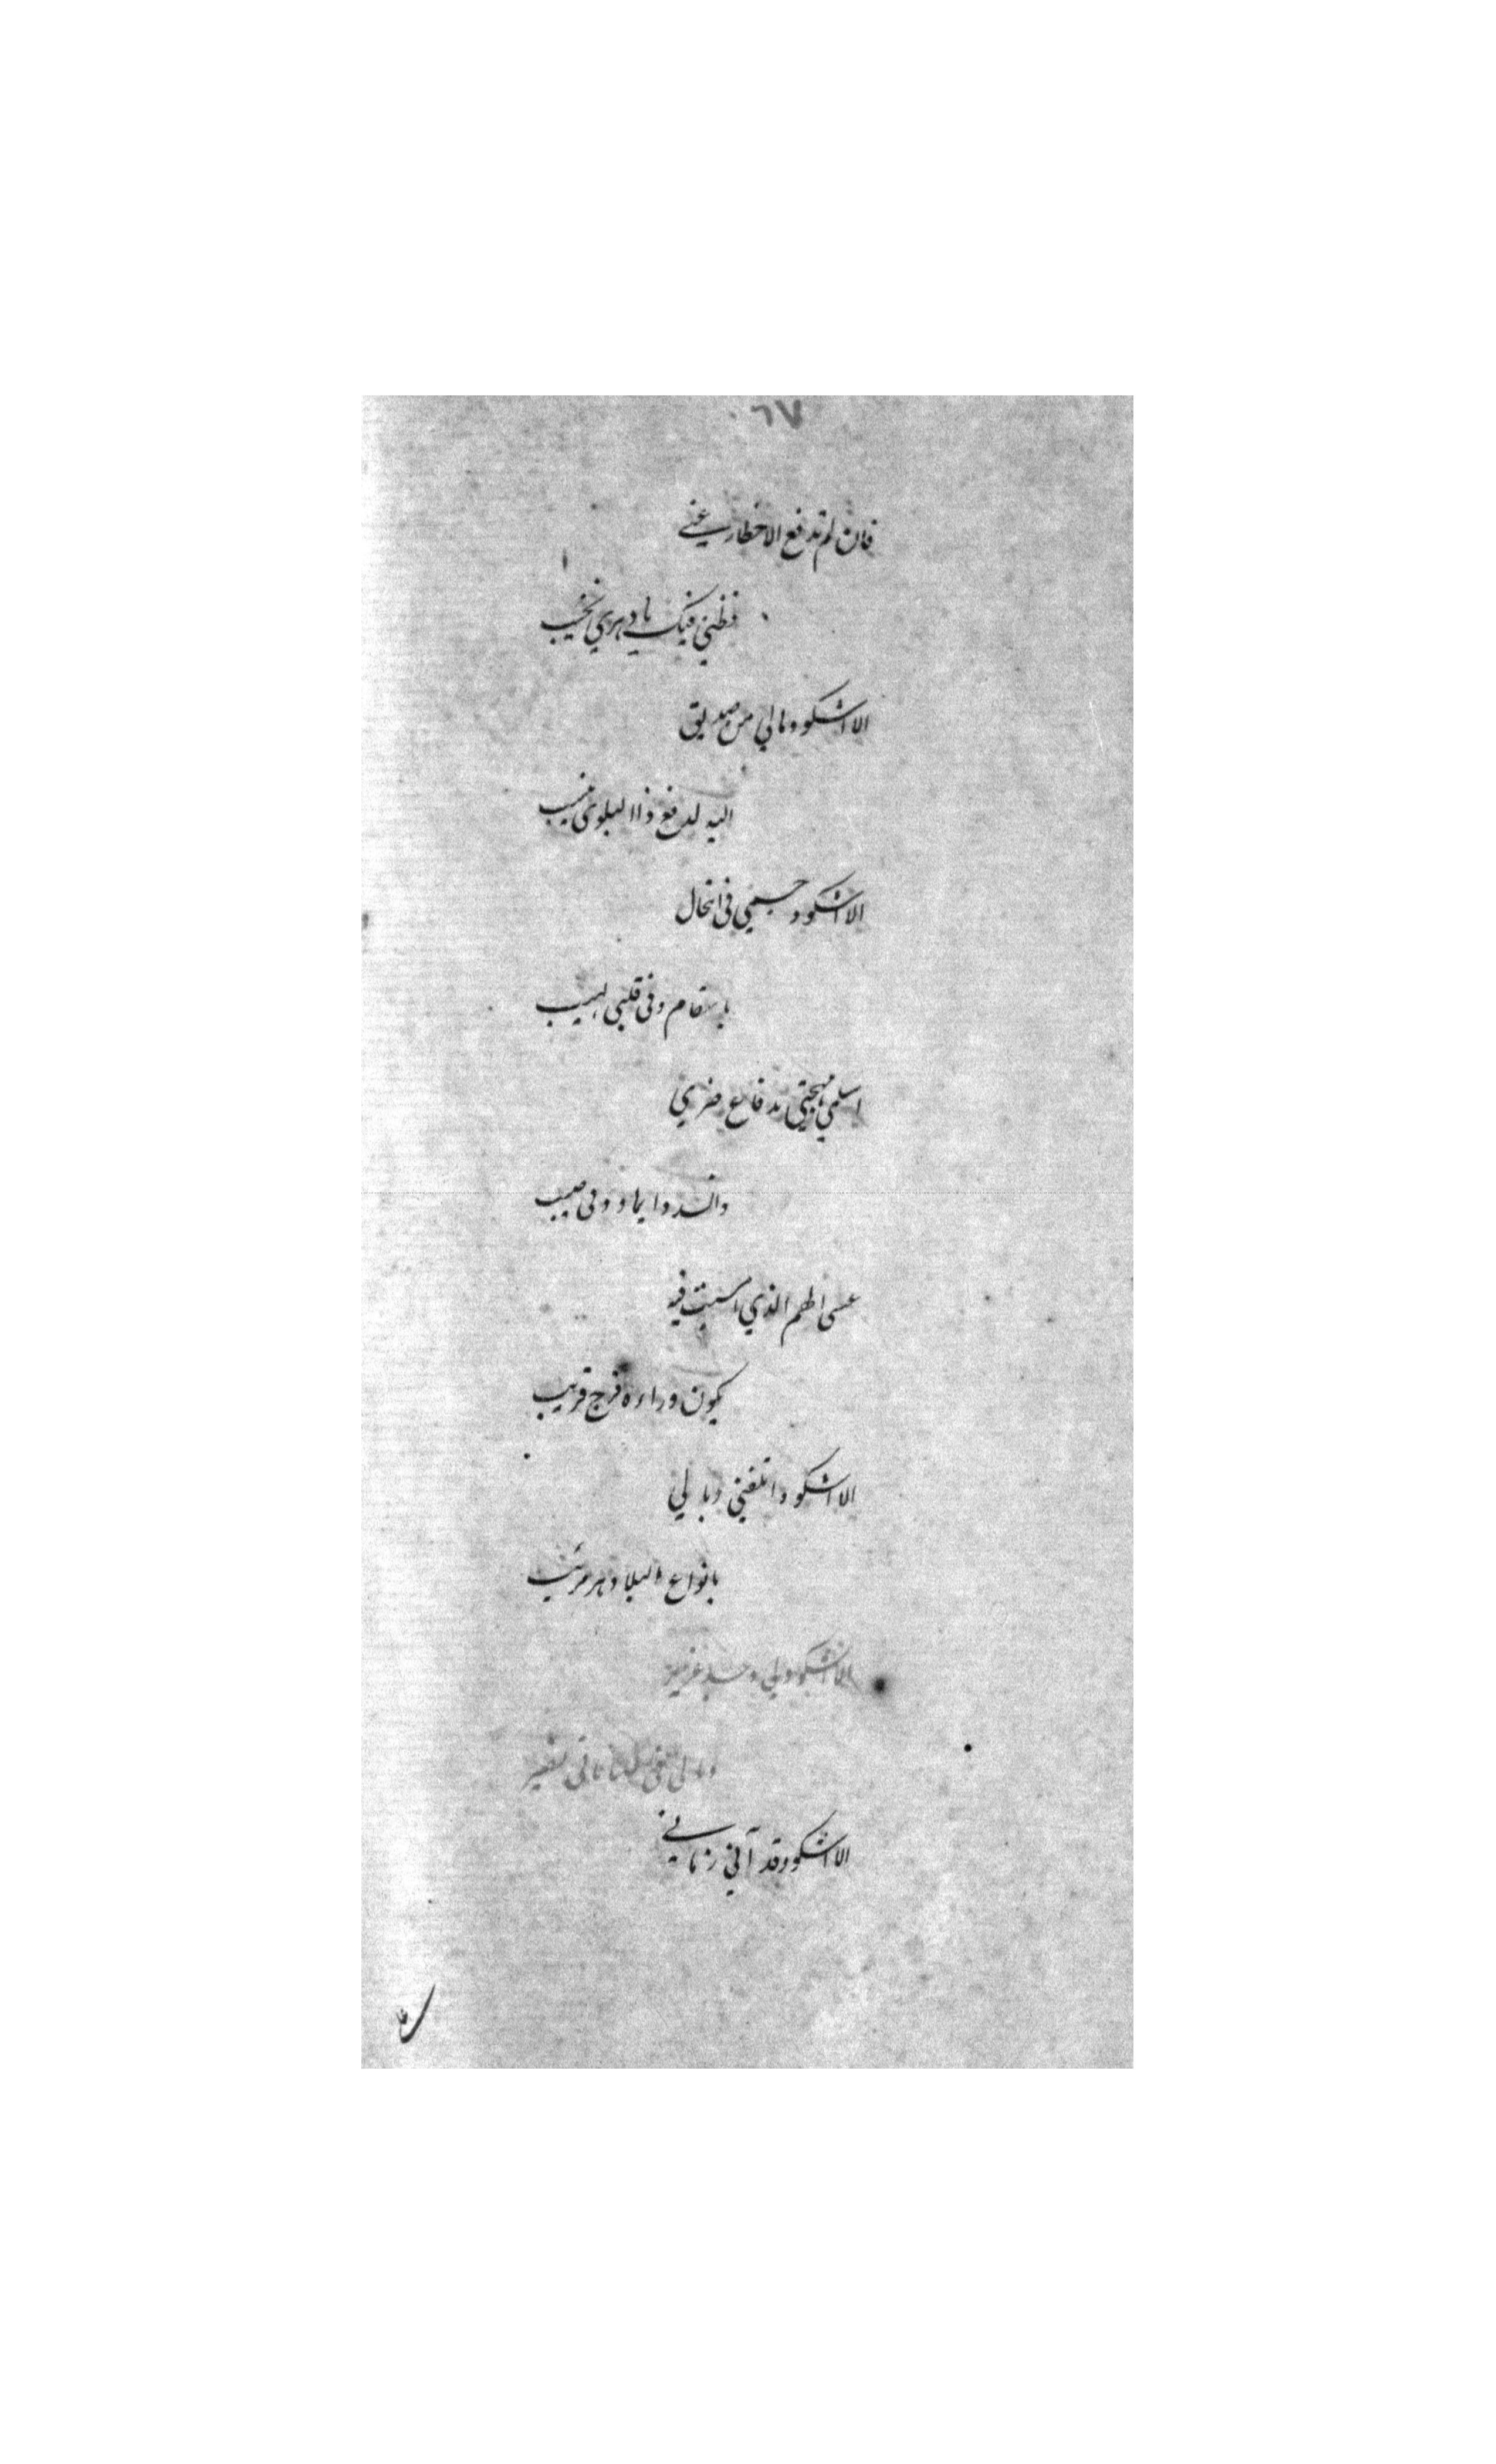 ٦٧
فان لم تدفع الاخطار عني
فظني فيك يا دهري نخيب
الا اشكو ومالي من صديق
اليه لدفع ذا البلوى ينيب
الا اشكو وجسمي في انتحال
باسقام وفي قلبي لهيب
اسلمي مهجتي
عسى الهم الذي امسيت فيه
يكون وراءه فرج قريب
الا اشكو واتلفني وبالي
بانواع البلا دهر مريب
الا اشكو ولي
الا اشكو وقد آني زماني